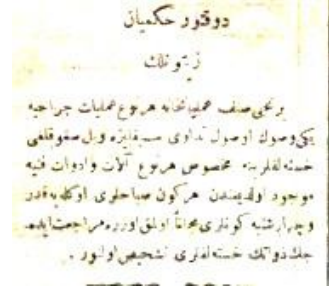 دوقتور حكميان
زيتونلك
برنجى صنف عملياتخانه هر نوع عمليات جراحيه
يكى وصوك اصول تداوى
خسته لقلرينه مخصوص هر نوع آلات وادوات فنيه
موجود اولديغندن هر كون صباحلرى اوكله يه قدر
وچهارشنبه كونلرى مجاناً اولمق اوزره مراجعت ايده
جك ذواتك خسته لقلرى تشخيص اولنور .